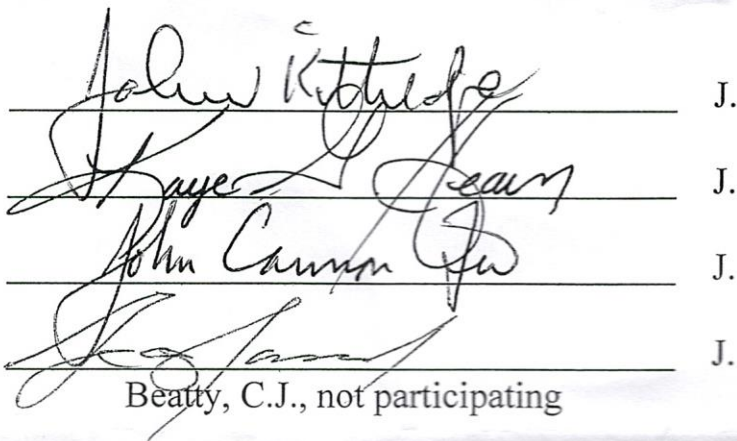 John Kittredge J.
Kaye G Hearn J.
John Cannon Few J.
J.
Beatty, C.J., not participating